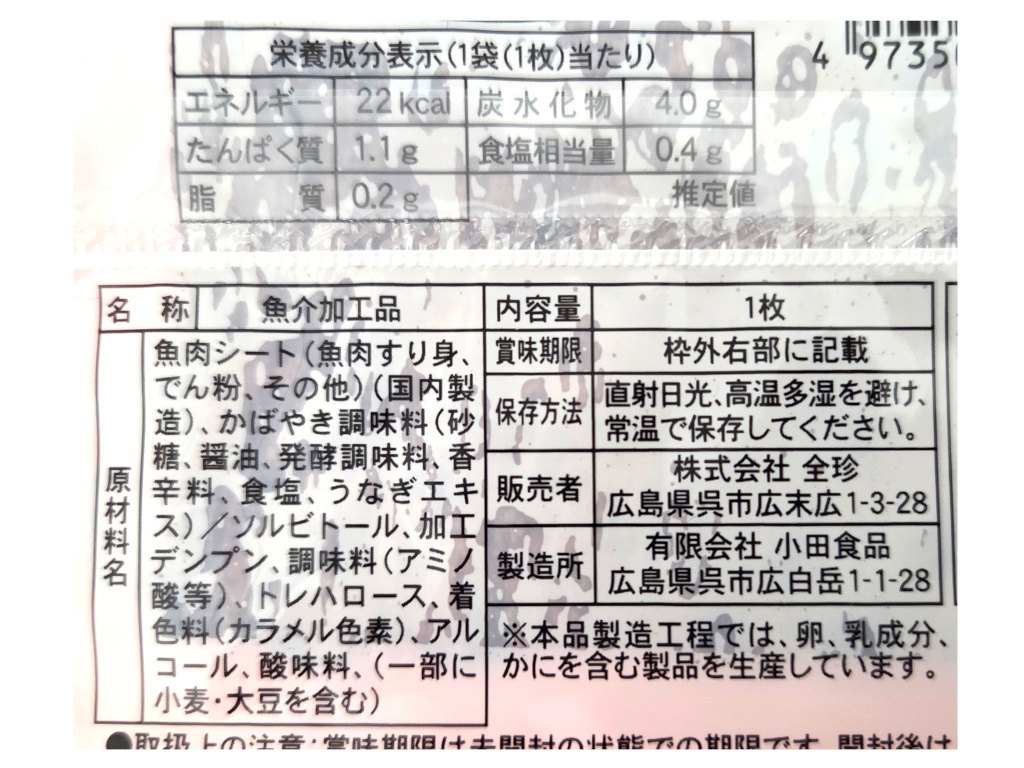 栄養成分表示(1袋(1枚)当たり)
エネルギー 22kcal 炭水化物 4.0g
たんぱく質 1.1g 食塩相当量 0.4g
脂質 0.2g 推定値
4 9735
名称 魚介加工品
原材料名
魚肉シート(魚肉すり身、
でん粉、その他)(国内製
造)、かばやき調味料(砂
糖、醤油、発酵調味料、香
辛料、食塩、うなぎエキ
ス)/ソルビトール、加工
デンプン、調味料(アミノ
酸等)、トレハロース、着
色料(カラメル色素)、アル
コール、酸味料、(一部に
小麦・大豆を含む)
内容量 1枚
賞味期限 枠外右部に記載
保存方法 直射日光、高温多湿を避け、
常温で保存してください。
販売者 株式会社 全珍
広島県呉市広末広1-3-28
製造所 有限会社 小田食品
広島県呉市広白岳1-1-28
※本品製造工程では、卵、乳成分、
かにを含む製品を生産しています。
●取扱上の注意:賞味期限は未開封の状態での期限です。開封後は